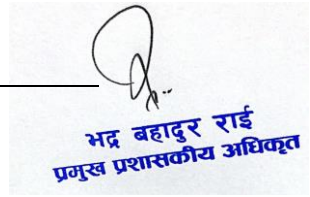 भद्र बहादुर राई
प्रमुख प्रशासकीय अधिकृत